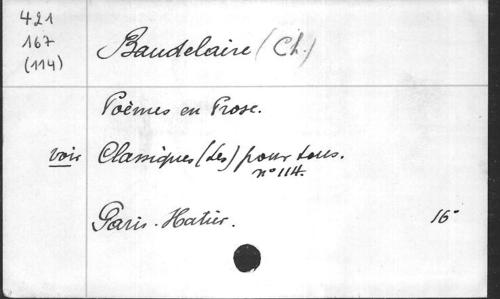 421
167
(114)
Baudelaire (Ch.)
Poèmes en Prose.
voir Classiques (Les) pour tous.
n° 114.
Paris - Hatier. 16°